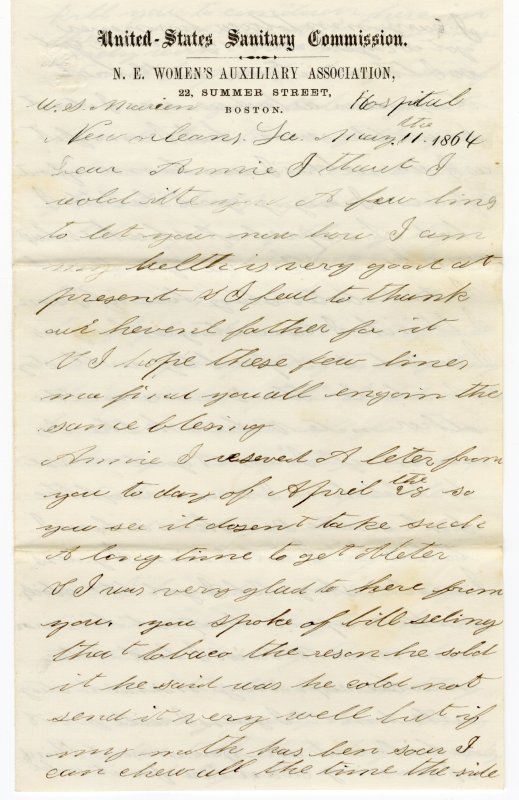 United-States Sanitary Commission.
N. E. WOMEN'S AUXILIARY ASSOCIATION,
22, SUMMER STREET,
BOSTON.
U. S. Marien Hospital
New orleans. La. May the 11. 1864
Dear Annie I thaut I
wold rite you A few lines
to let you now how I am
my hellth is very good at
present & I feel to thank
our hevenl father for it
& I hope these few lines
ma find you all engoin the
same blesing
Annie I reseved A leter from
you to day of April the 28 so
you see it dosent take such
A long time to get A leter
& I was very glad to here from
you. you spoke of bill seling
that tobaco the reson he sold
it he said was he cold not
send it very well but if
my muth has ben soar I
can chew all the time the side